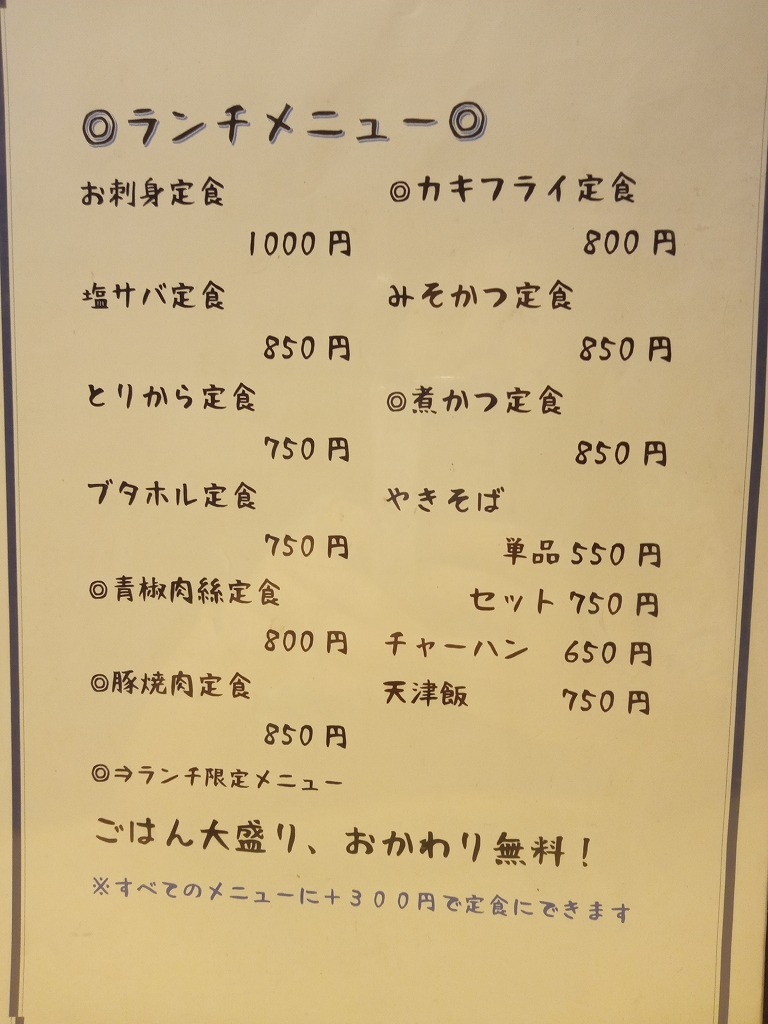 ◎ランチメニュー◎
お刺身定食
1000円
塩サバ定食
850円
とりから定食
750円
ブタホル定食
750円
◎青椒肉絲定食
800円
◎豚焼肉定食
850円
◎カキフライ定食
800円
みそかつ定食
850円
◎煮かつ定食
850円
やきそば
単品 550円
セット 750円
チャーハン 650円
天津飯 750円
◎⇒ランチ限定メニュー
ごはん大盛り、おかわり無料！
※すべてのメニューに＋３００円で定食にできます